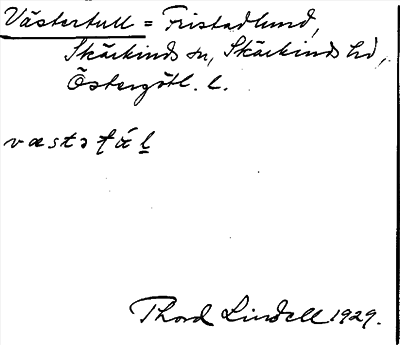 Västertull = Fristadlund,
Skärkinds sn, Skärkinds hd,
Östergötl. l.
væstə ṭá ḷ
Thord Lindell 1929.